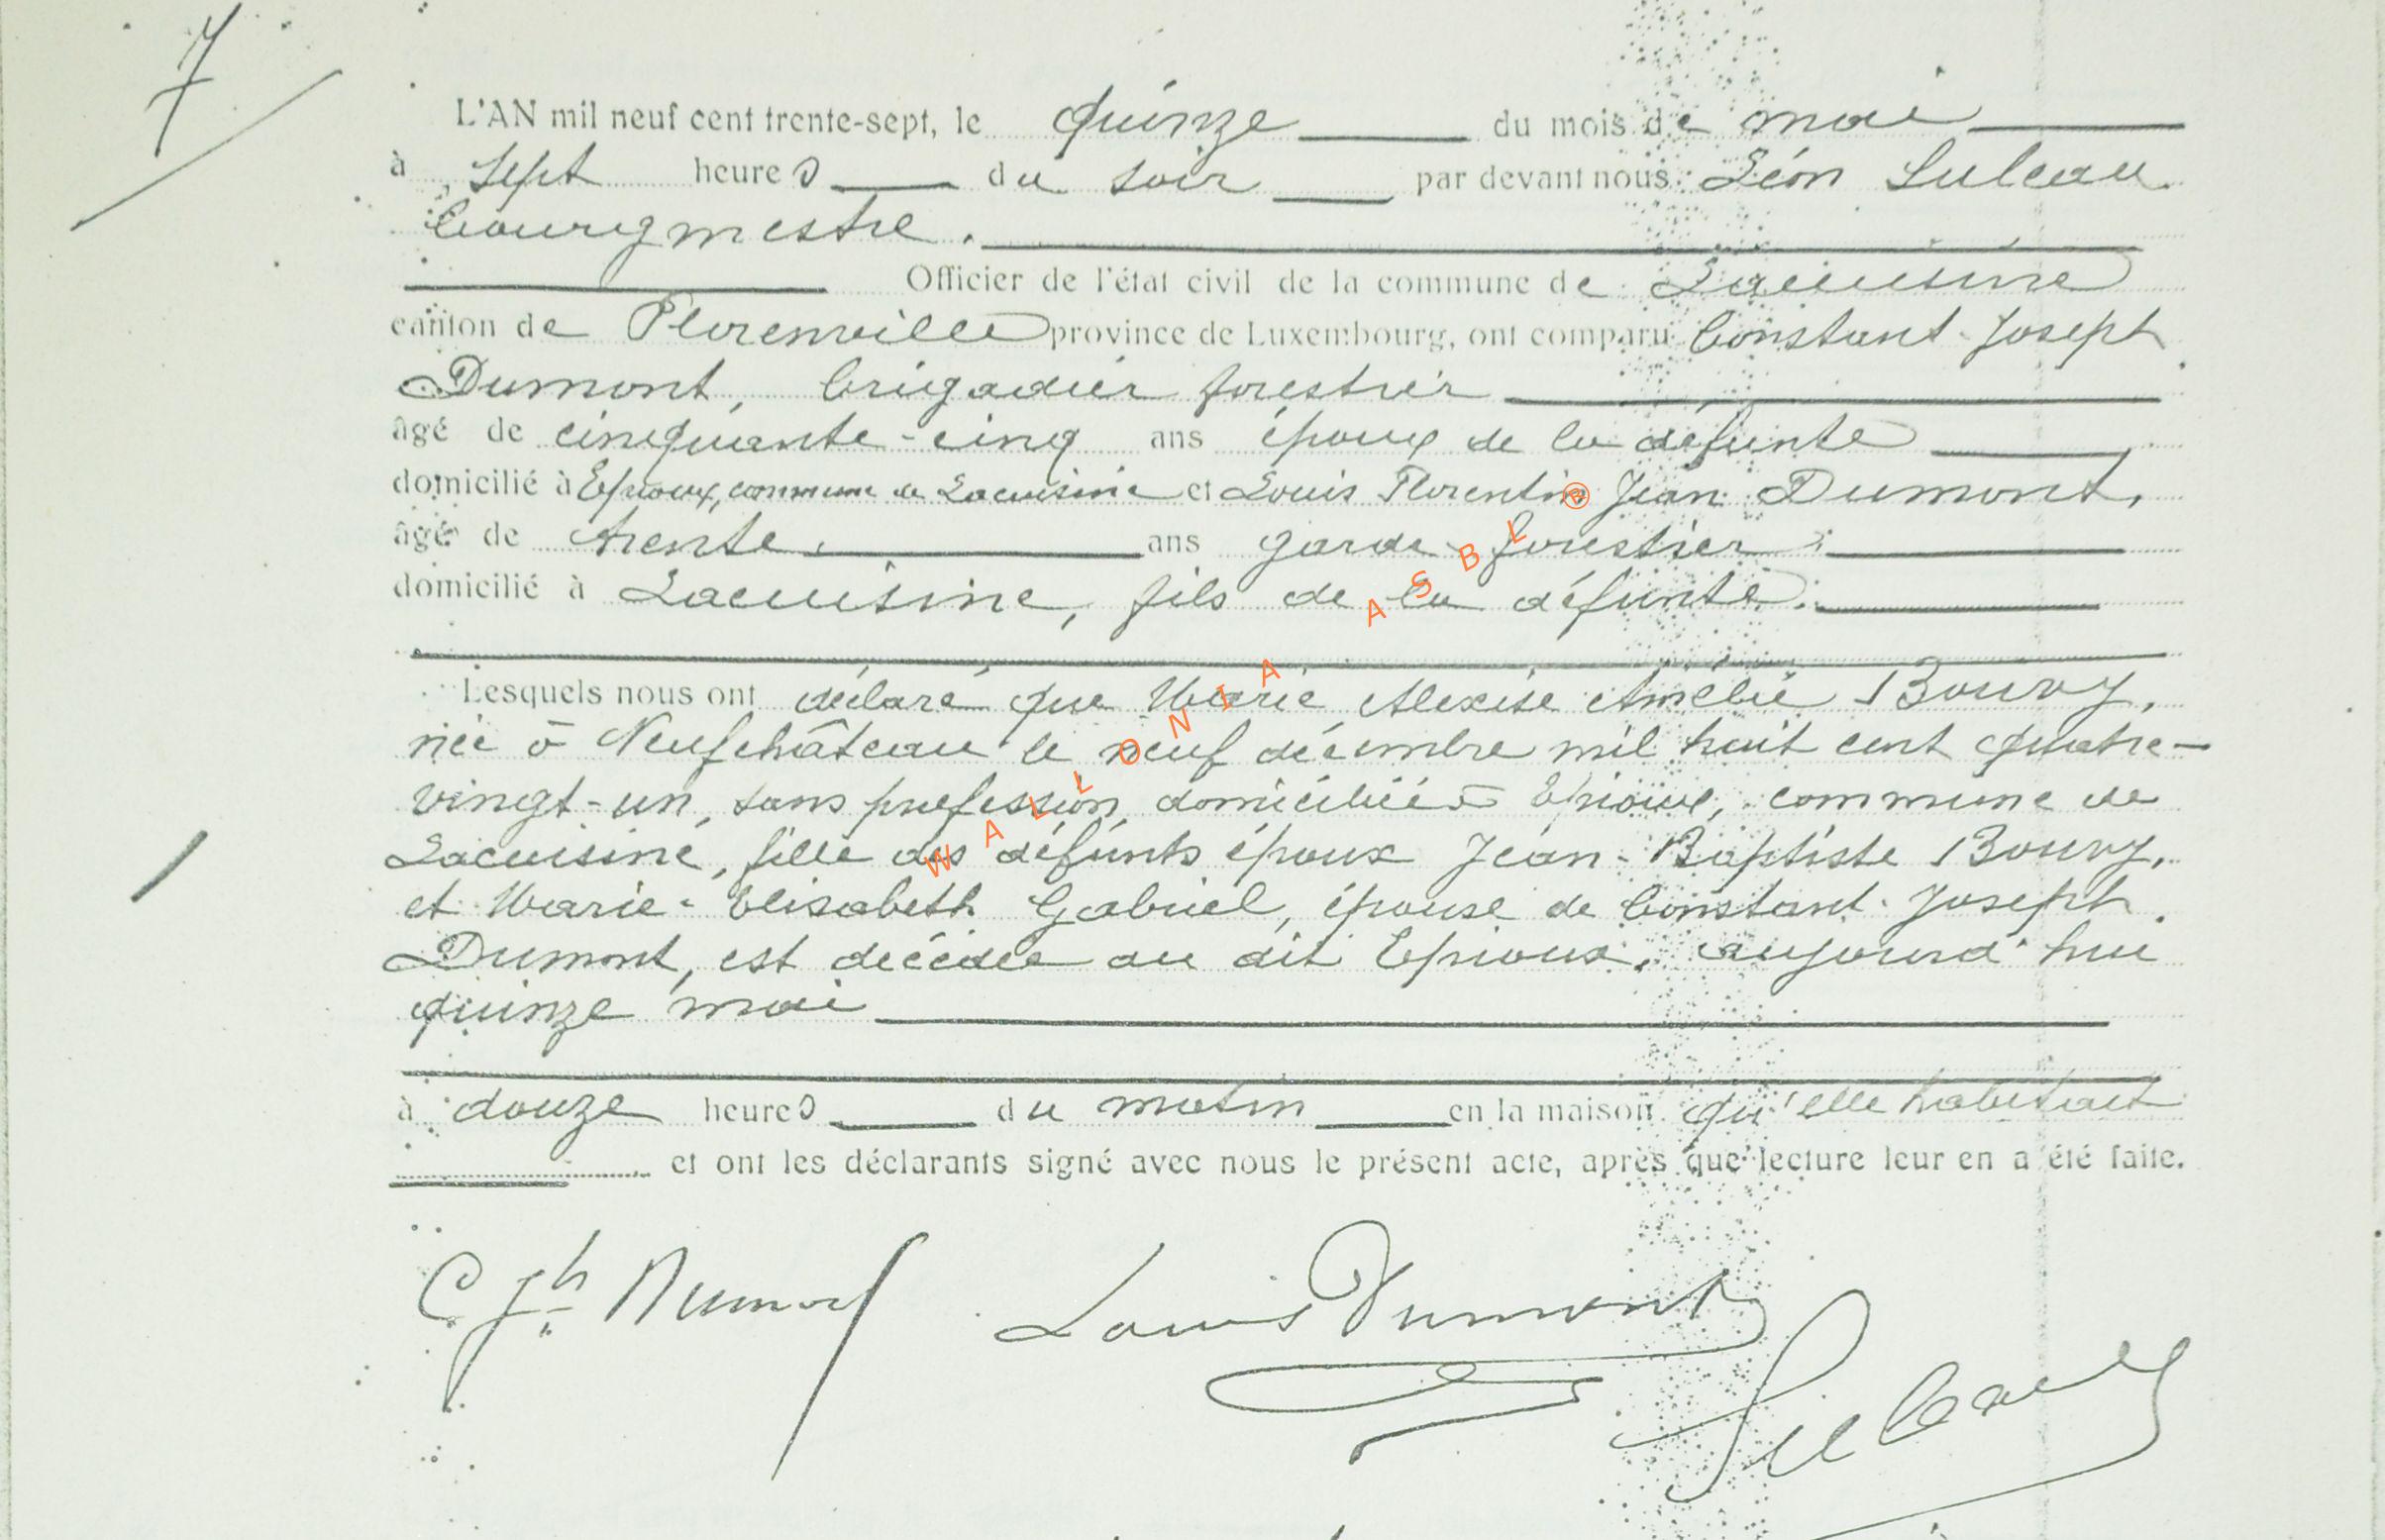 7
L'AN mil neuf cent trente-sept, le quinze du mois de mai
à sept heures du soir par devant nous Léon
bourgmestre.
Officier de l'état civil de la commune de Lacuisine
canton de Florenville province de Luxembourg, ont comparu Constant-Joseph
Dumont, brigadier forestier
âgé de cinquante-cinq ans époux de la défunte
domicilié à Epioux, commune de Lacuisine et Louis Florentin Jean Dumont,
âgé de trente ans garde forestier
domicilié à Lacuisine, fils de la défunte.
Lesquels nous ont déclaré que Marie Alexise Amélie Bouvy,
née à Neufchâteau le neuf décembre mil huit cent quatre-
vingt-un, sans profession, domiciliée à Epioux, commune de
Lacuisine, fille des défunts époux Jean-Baptiste Bouvy,
et Marie-Elisabeth Gabriel, épouse de Constant-Joseph
Dumont, est décédée au dit Epioux, aujourd'hui
quinze mai
à douze heures du matin en la maison qu'elle habitait
et ont les déclarants signé avec nous le présent acte, après que lecture leur en a été faite.
C Jh Dumont Louis Dumont
WALLONIA ASBL ®